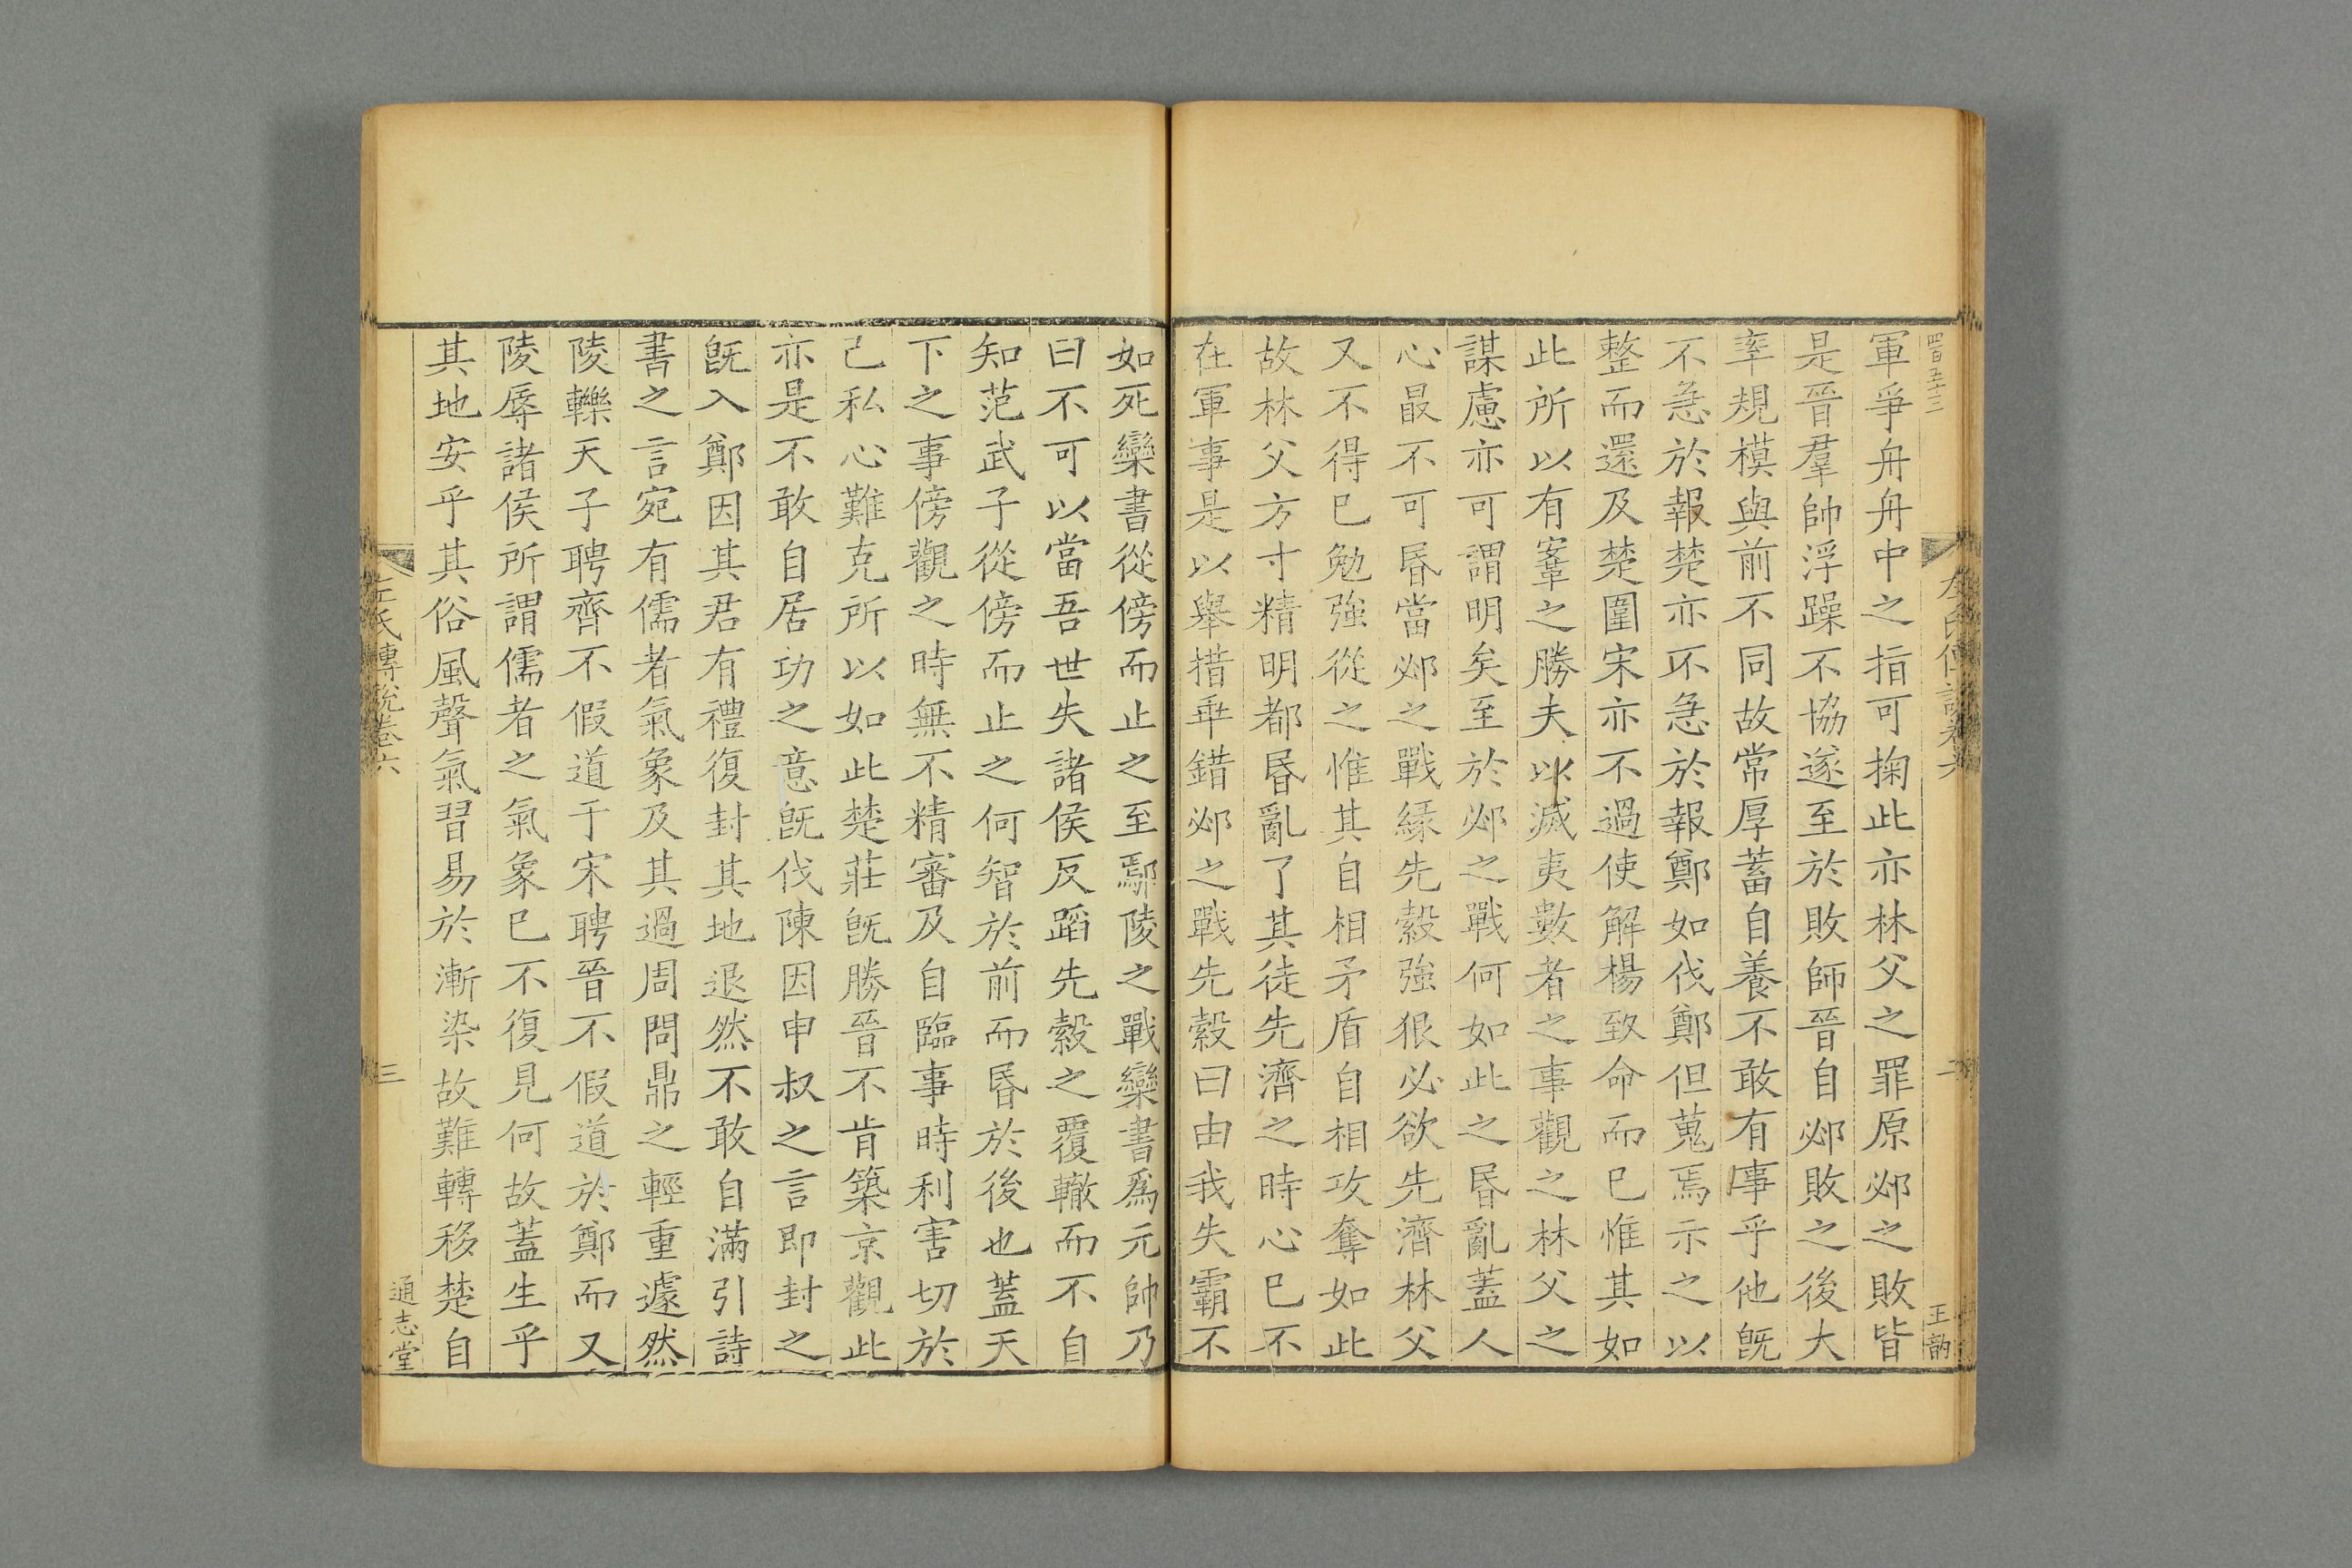 四百五十三
左氏傳說卷六
二
王韵
軍爭舟舟中之指可掬此亦林父之罪原邲之敗皆
是晉羣帥浮躁不協遂至於敗師晉自邲敗之後大
率規模與前不同故常厚蓄自養不敢有事乎他旣
不急於報楚亦不急於報鄭如伐鄭但蒐焉示之以
整而還及楚圍宋亦不過使解楊致命而已惟其如
此所以有鞌之勝夫以滅夷數者之事觀之林父之
謀慮亦可謂明矣至於邲之戰何如此之昬亂蓋人
心最不可昬當邲之戰緣先縠強狠必欲先濟林父
又不得已勉強從之惟其自相矛盾自相攻奪如此
故林父方寸精明都昬亂了其徒先濟之時心已不
在軍事是以舉措乖錯邲之戰先縠曰由我失霸不
如死欒書從傍而止之至鄢陵之戰欒書爲元帥乃
曰不可以當吾世失諸侯反蹈先縠之覆轍而不自
知范武子從傍而止之何智於前而昬於後也蓋天
下之事傍觀之時無不精審及自臨事時利害切於
己私心難克所以如此楚莊旣勝晉不肯築京觀此
亦是不敢自居功之意旣伐陳因申叔之言卽封之
旣入鄭因其君有禮復封其地退然不敢自滿引詩
書之言宛有儒者氣象及其過周問鼎之輕重遽然
陵轢天子聘齊不假道于宋聘晉不假道於鄭而又
陵辱諸侯所謂儒者之氣象已不復見何故蓋生乎
其地安乎其俗風聲氣習易於漸染故難轉移楚自
左氏傳說卷六
三
通志堂